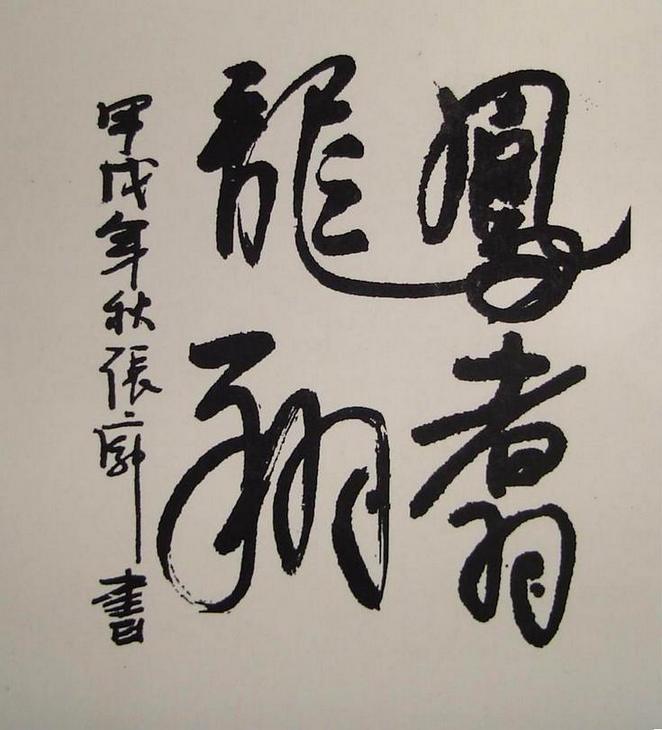 鳳翥
龍翔
甲戌年秋張廓書